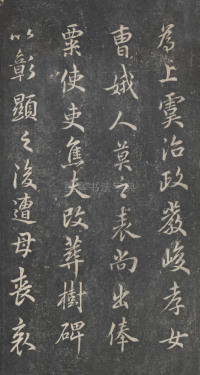 為上虞治政嚴峻孝女
曹娥人莫之表尚出俸
粟使吏焦大改葬樹碑
以彰顯之後遭母喪哀